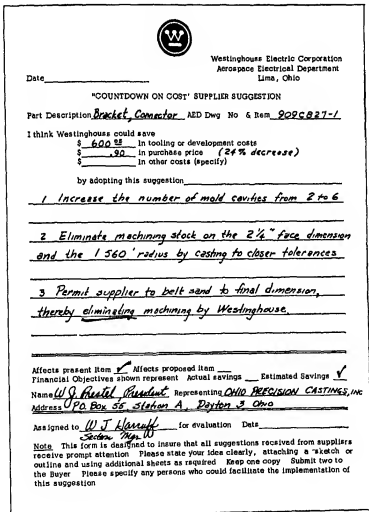 W
Westinghouse Electric Corporation
Aerospace Electrical Department
Date Lima, Ohio
"COUNTDOWN ON COST' SUPPLIER SUGGESTION
Part Description Bracket, Connector AED Dwg No & Item 909C827-1
I think Westinghouse could save
$ 600 00 in tooling or development costs
$ .90 in purchase price (24% decrease)
$ in other costs (specify)
by adopting this suggestion
1 Increase the number of mold cavities from 2 to 6
2 Eliminate machining stock on the 2 1/4" face dimension
and the 1 560' radius by casting to closer tolerances
3 Permit supplier to belt sand to final dimension,
thereby eliminating machining by Westinghouse
Affects present item ✓ Affects proposed item
Financial Objectives shown represent Actual savings Estimated Savings ✓
Name W J. Prestel, President Representing OHIO PRECISION CASTINGS, INC
Address P.O. Box 55, Station A, Dayton 3 Ohio
Assigned to W J Harruff for evaluation Date
Section Mgr
Note This form is designed to insure that all suggestions received from suppliers
receive prompt attention Please state your idea clearly, attaching a sketch or
outline and using additional sheets as required Keep one copy Submit two to
the Buyer Please specify any persons who could facilitate the implementation of
this suggestion